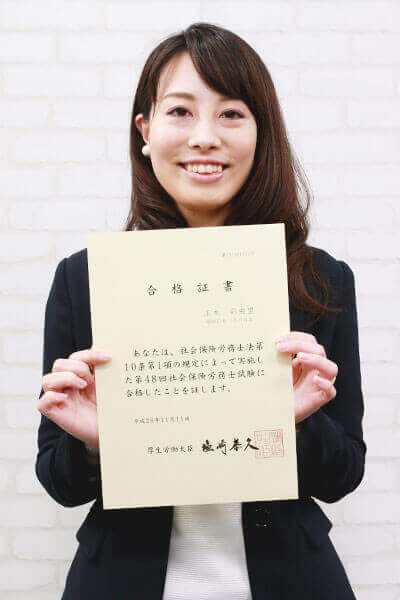 合格証書
あなたは、社会保険労務士法第
10条第1項の規定によって実施し
た第48回社会保険労務士試験に
合格したことを証します。
平成28年11月11日
厚生労働大臣 塩崎恭久